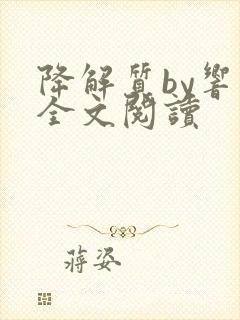 降解質by響
全文閱讀
蔣姿